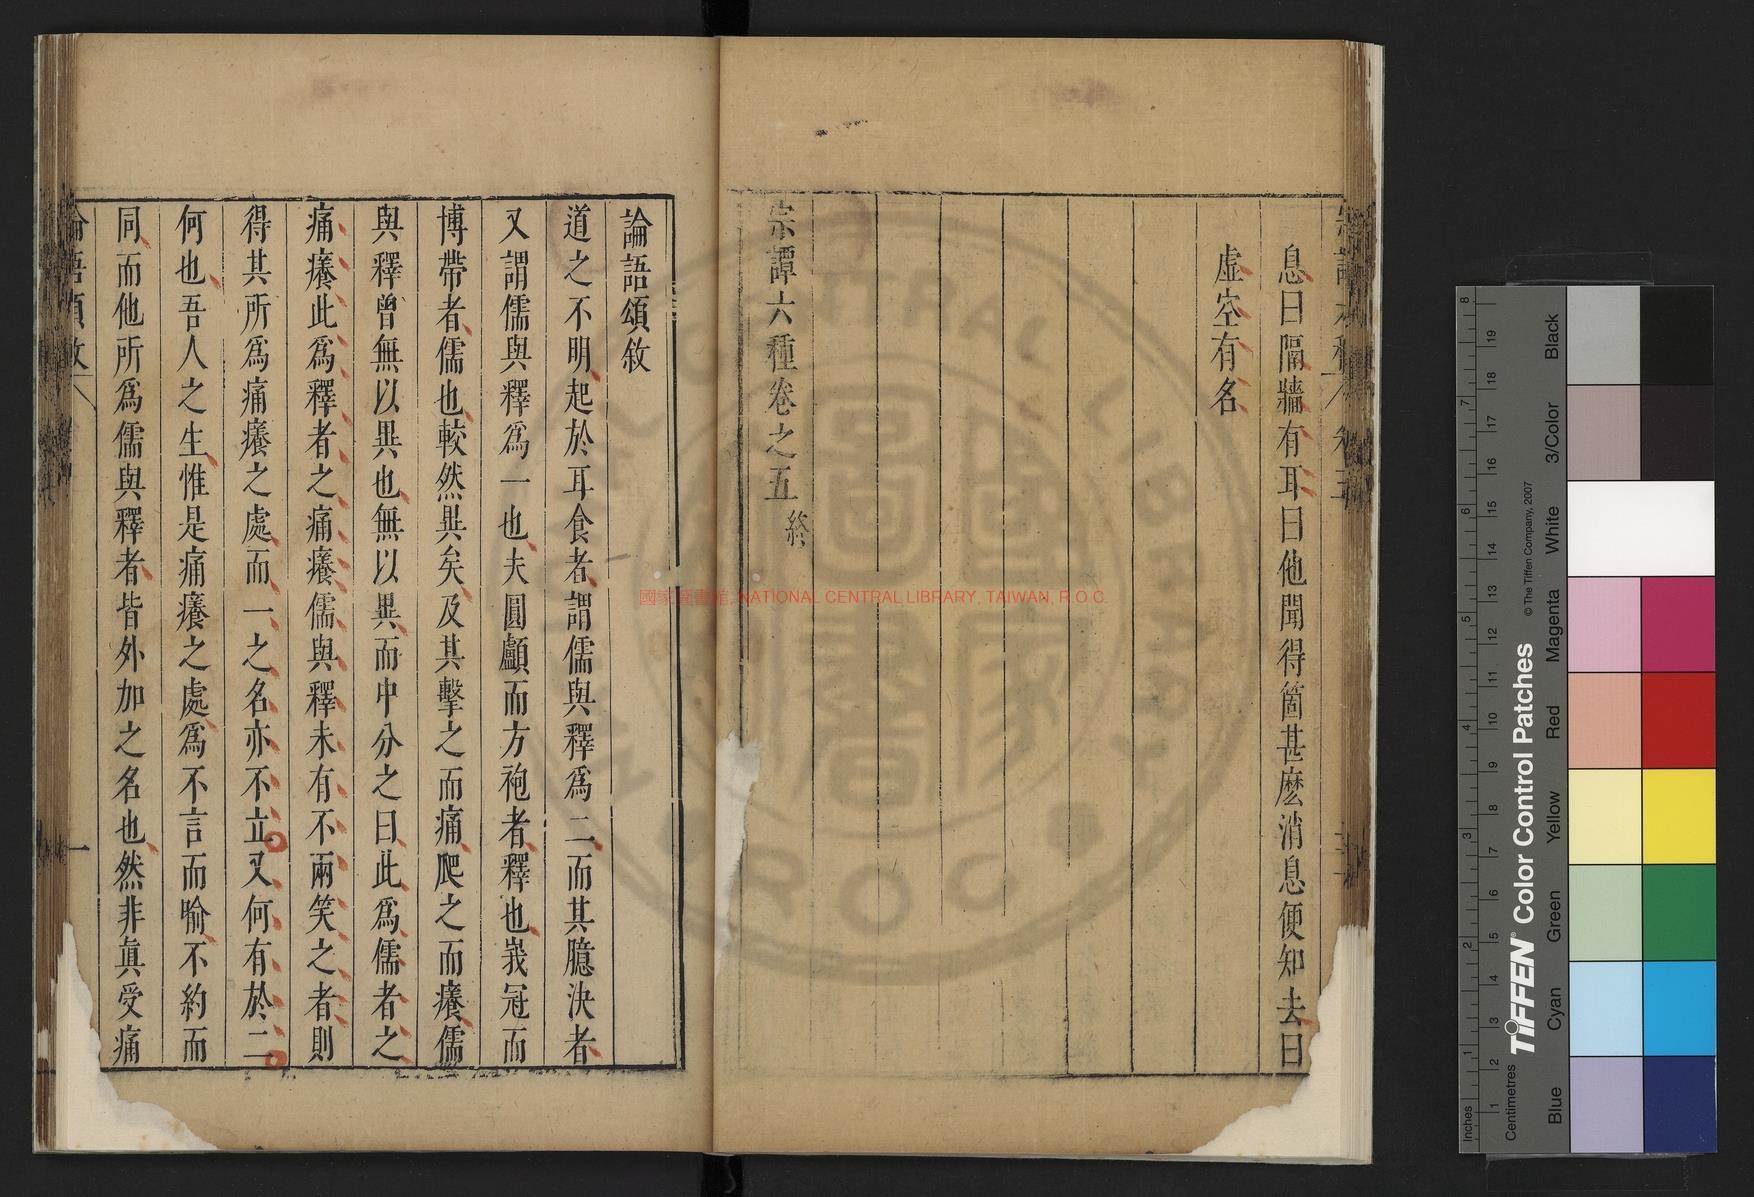 息曰隔牆有耳曰他聞得箇甚麽消息便知去曰
虛空有名
宗譚六種卷之五終
論語頌敘
道之不明起於耳食者謂儒與釋爲二而其臆決者
又謂儒與釋爲一也夫圓顱而方袍者釋也峩冠而
博帶者儒也較然異矣及其擊之而痛爬之而癢儒
與釋曾無以異也無以異而中分之曰此爲儒者之
痛癢此爲釋者之痛癢儒與釋未有不兩笑之者則
得其所爲痛癢之處而一之名亦不立又何有於二
何也吾人之生惟是痛癢之處爲不言而喻不約而
同而他所爲儒與釋者皆外加之名也然非真受痛
論語頌敘
一
國家圖書館, NATIONAL CENTRAL LIBRARY, TAIWAN, R.O.C.
Inches
Centimetres
TIFFEN Color Control Patches
© The Tiffen Company, 2007
Blue
Cyan
Green
Yellow
Red
Magenta
White
3/Color
Black